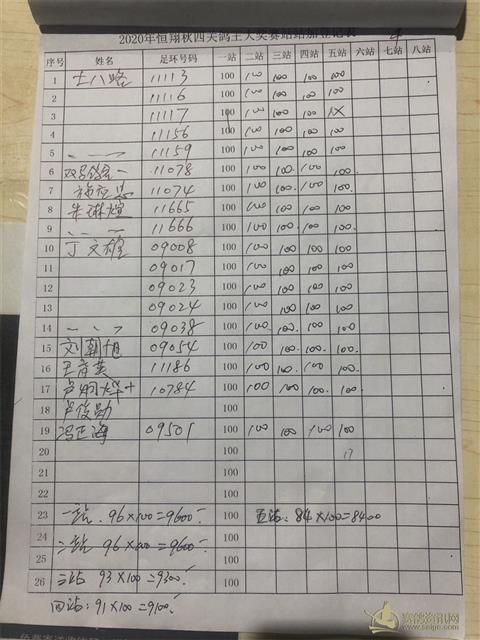 2020年恒翔秋四关鸽王大奖赛站站加登记表 4
序号 姓名 足环号码 一站 二站 三站 四站 五站 六站 七站 八站
1 王八路 11113 100 100 100 100 100
2 11116 100 100 100 100 100
3 11117 100 100 100 100
4 11156 100 100 100 100 100
5 11159 100 100 100 100 100
6 11078 100 100 100 100 100
7 11074 100 100 100 100 100
8 11665 100 100 100 100 100
9 11666 100 100 100 100 100
10 丁文雄 09008 100 100 100 100 100
11 09017 100 100 100 100 100
12 09023 100 100 100 100 100
13 09024 100 100 100 100 100
14 09038 100 100 100 100 100
15 刘朝旭 09054 100 100 100 100 100
16 11186 100 100 100 100 100
17 10784 100 100 100 100 100
18 卢俊勋 100
19 冯正海 09501 100 100 100 100 100
20 100 17
21 100
22 100
23 一站. 96×100=9600 100 五站: 84×100=8400
24 二站 96×100=9600 100
25 100
26 三站 93×100=9300 100
四站: 91×100=9100
赛鸽资讯网
www.saige.com